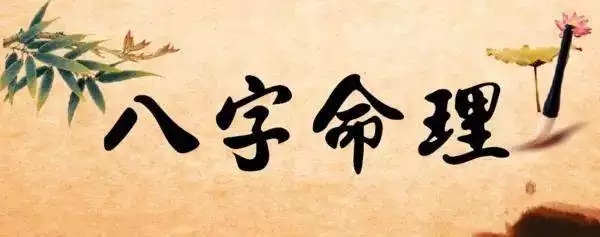 八字命理